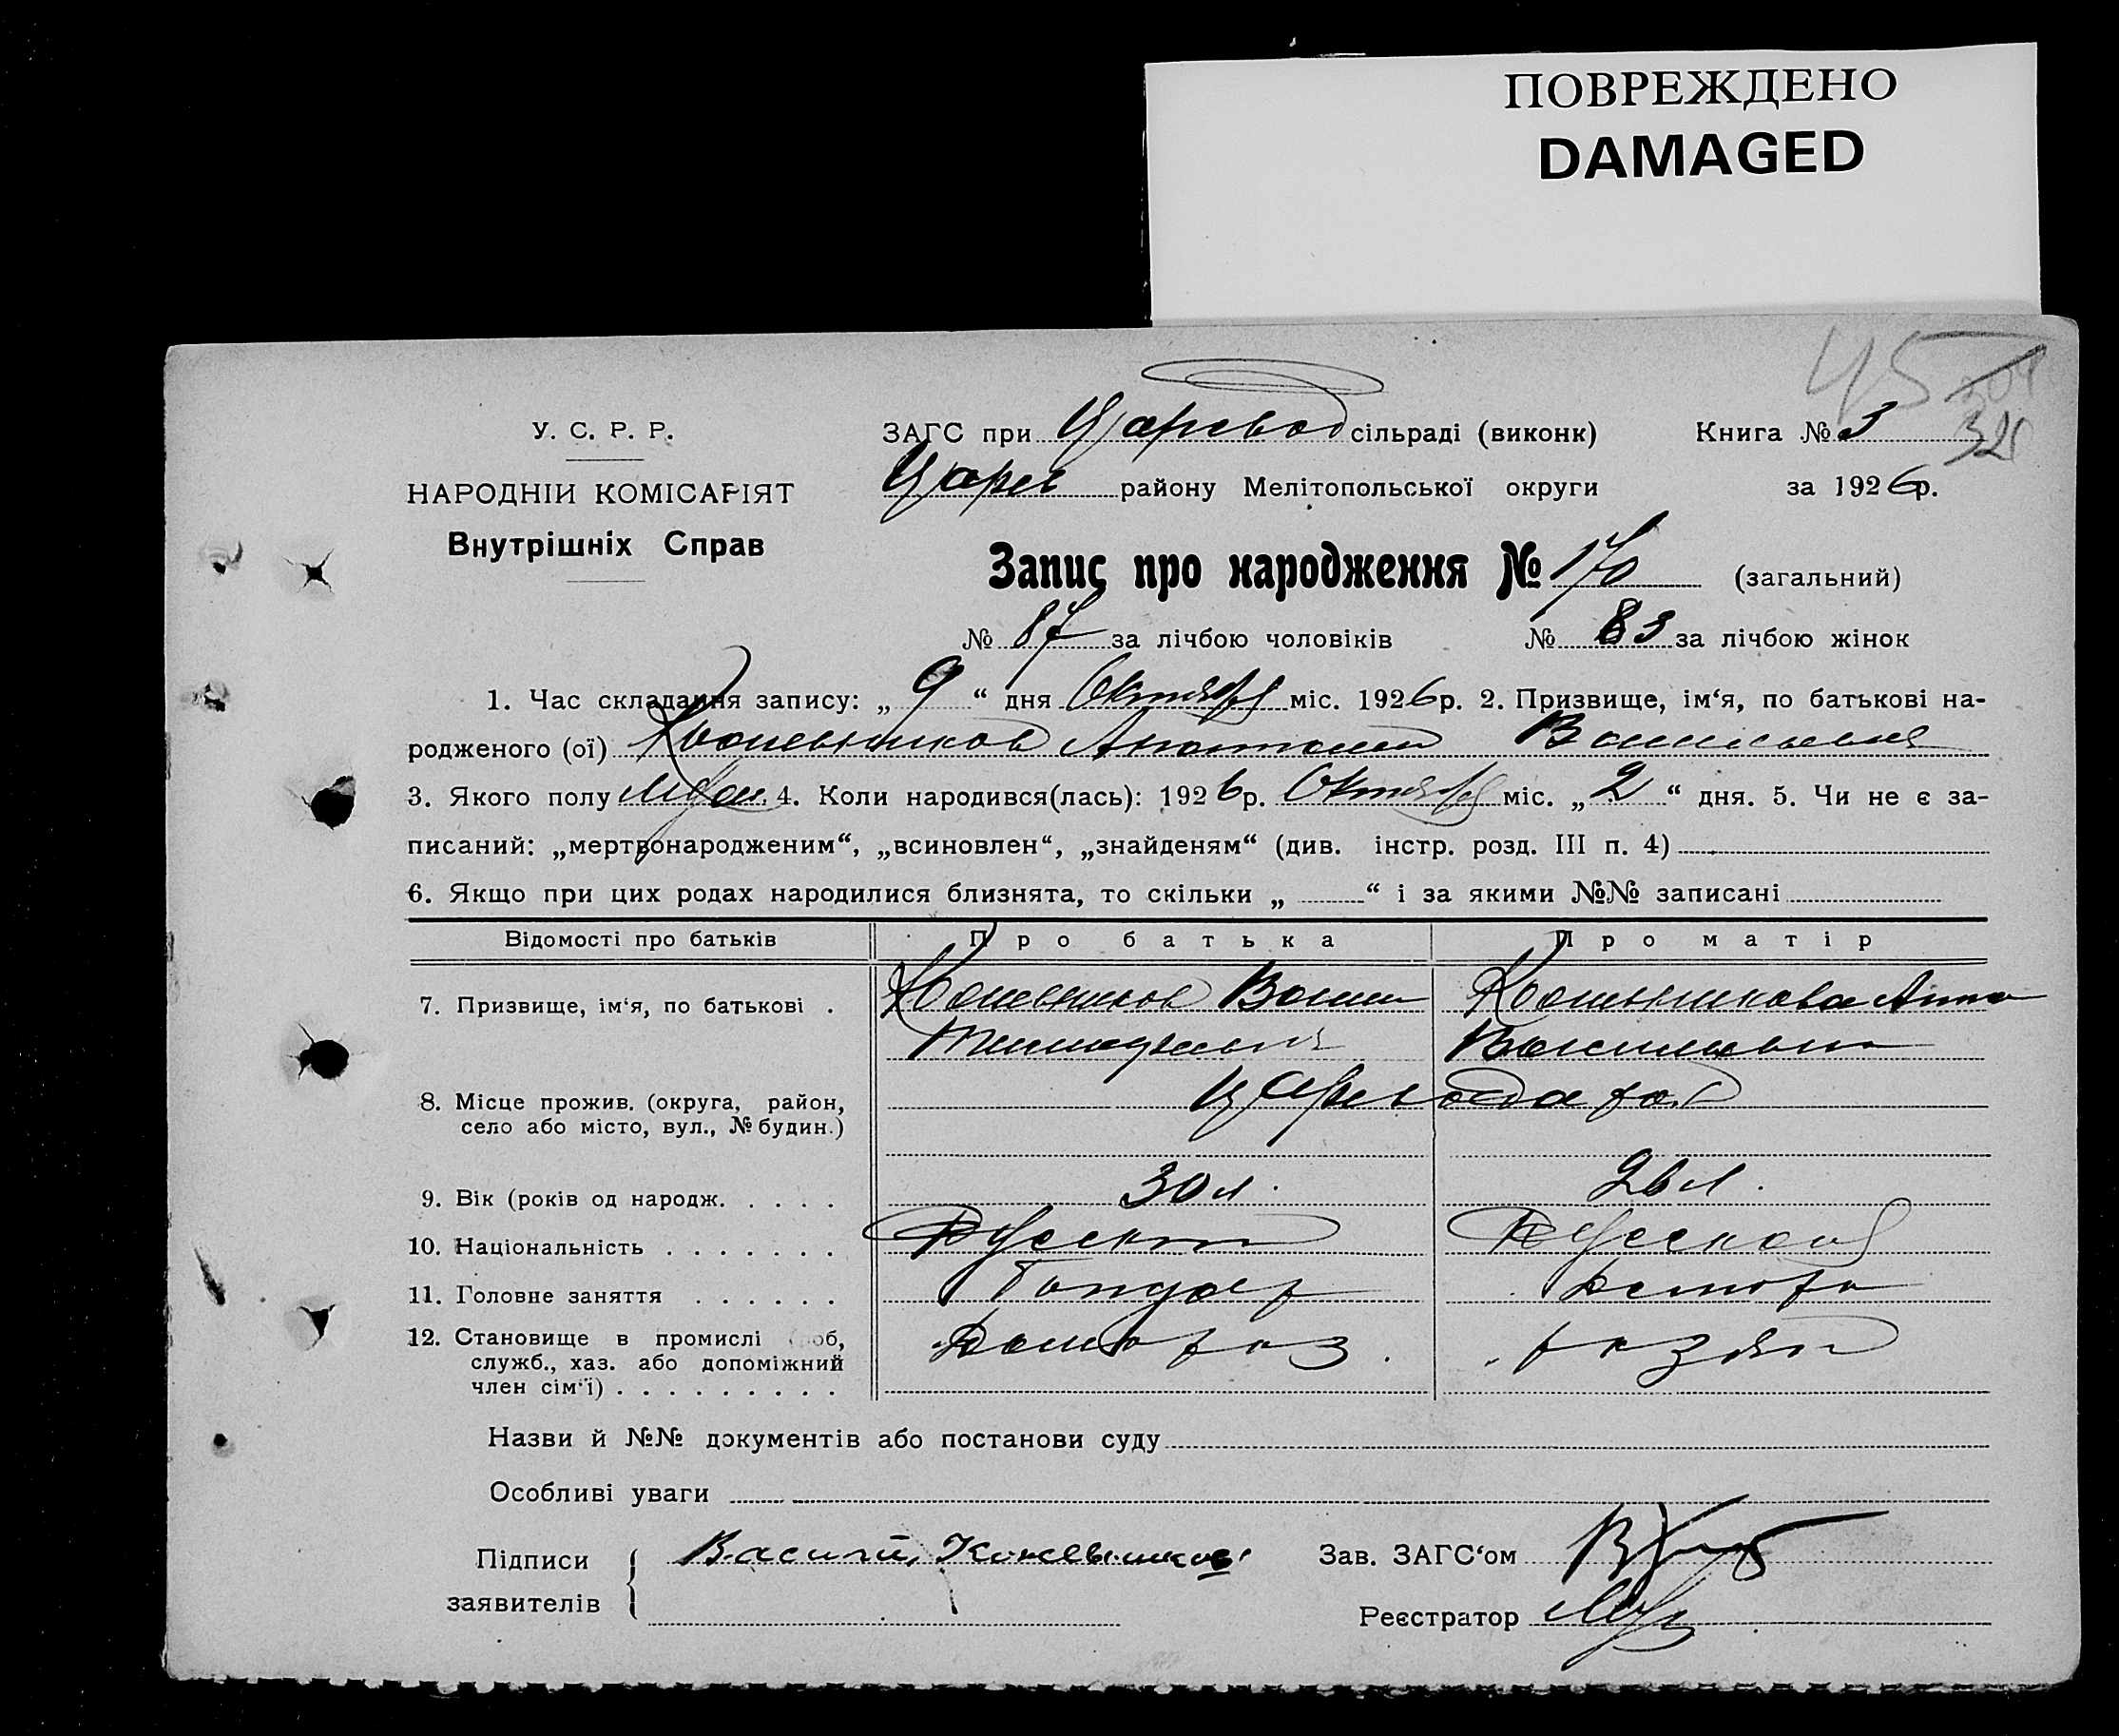 ПОВРЕЖДЕНО
DAMAGED
45
У. С. Р. Р.
НАРОДНІЙ КОМІСАРІЯТ
Внутрішніх Справ
ЗАГС при Царевод сільраді (виконк) Книга № 3
Царев району Мелітопольської округи за 1926 р.
Запис про народження № 170 (загальний)
№ 87 за лічбою чоловіків № 83 за лічбою жінок
1. Час складання запису: „ 9 “ дня Октября міс. 1926 р. 2. Призвище, ім‘я, по батькові на-
родженого (ої) Кожевников Анатолий Васильевич
3. Якого полу Муж. 4. Коли народився(лась): 1926 р. Октября міс. „ 2 “ дня. 5. Чи не є за-
писаний: „мертвонародженим“, „всиновлен“, „знайденям“ (див. інстр. розд. III п. 4)
6. Якщо при цих родах народилися близнята, то скільки „ “ і за якими №№ записані
Відомості про батьків Про батька Про матір
7. Призвище, ім‘я, по батькові . Кожевников Васили Кожевникова Анна
Васильевна
8. Місце прожив. (округа, район,
село або місто, вул., № будин.)
9. Вік (років од народж. . . . . 30 л. 26 л.
10. Національність . . . . . . . Русский Русская
11. Головне заняття . . . . . . Бондар Домохо
12. Становище в промислі (роб,
служб., хаз. або допоміжний
член сім‘ї) . . . . . . . . . Домохоз. хозяй
Назви й №№ документів або постанови суду
Особливі уваги
Підписи Василий Кожевников Зав. ЗАГС‘ом
заявителів Реєстратор